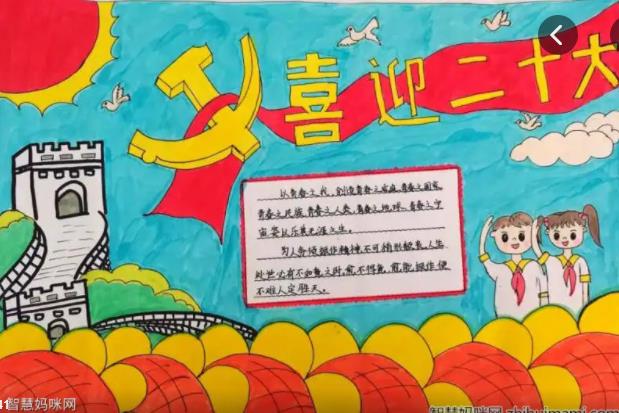 喜迎二十大
以青春之我,创造青春之家庭,青春之国家,
青春之民族,青春之人类,青春之地球,青春之宇
宙,资以乐其无涯之生。
为人务须振作精神,不可稍形颓累,人生
处世必有不如意之时,愈不得意,愈能振作,便
不难人定胜天。
智慧妈咪网
智慧妈咪网 zhihuimami.com